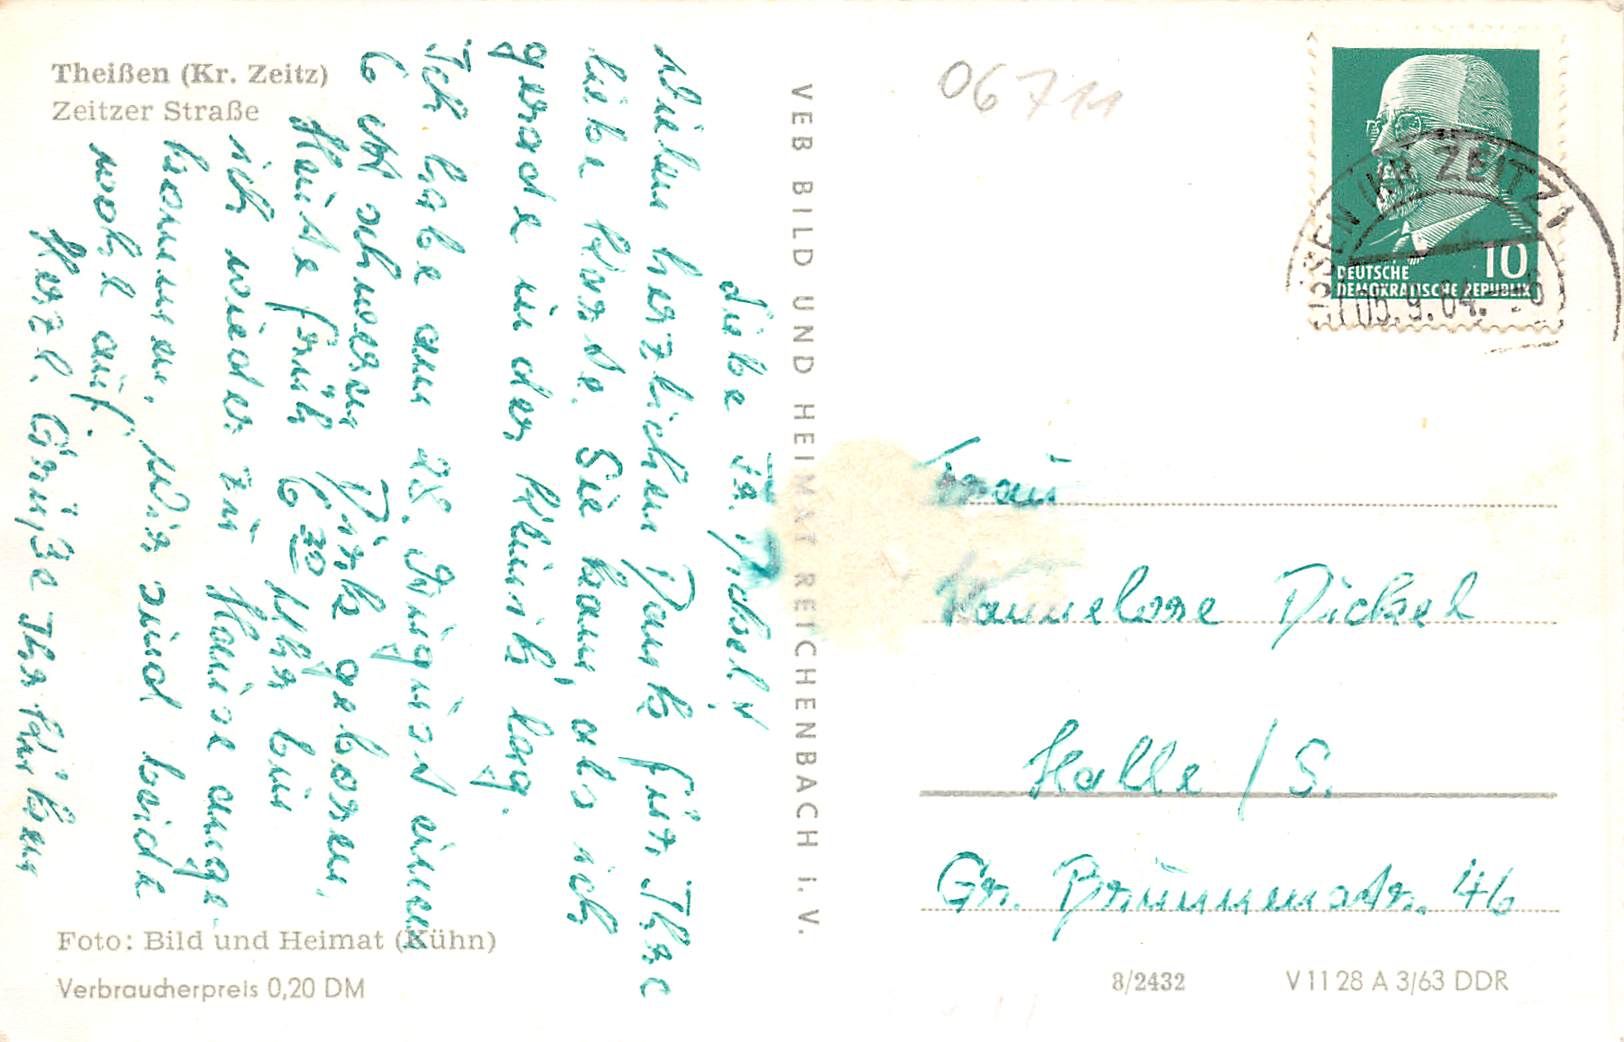 Theißen (Kr. Zeitz)
Zeitzer Straße
Liebe Fr. Dickel!
Vielen herzlichen Dank für Ihre
liebe Karte. Sie kam, als ich
gerade in der Klinik lag.
Ich habe am 28. August einen
6 schweren geboren,
Heute früh 6 30 Uhr bin
ich wieder zu Hause ange-
kommen. Wir sind beide
wohl auf.
Herzl. Grüße Ihre
VEB BILD UND HEIMAT REICHENBACH I. V.
06711
DEUTSCHE
DEMOKRATISCHE REPUBLIK
10
(KR ZEITZ)
05.9.64.
Frau
Hannelore Dickel
Halle / S.
Gr. Brunnenstr. 46
Foto: Bild und Heimat (Kühn)
Verbraucherpreis 0,20 DM
8/2432
V 11 28 A 3/63 DDR